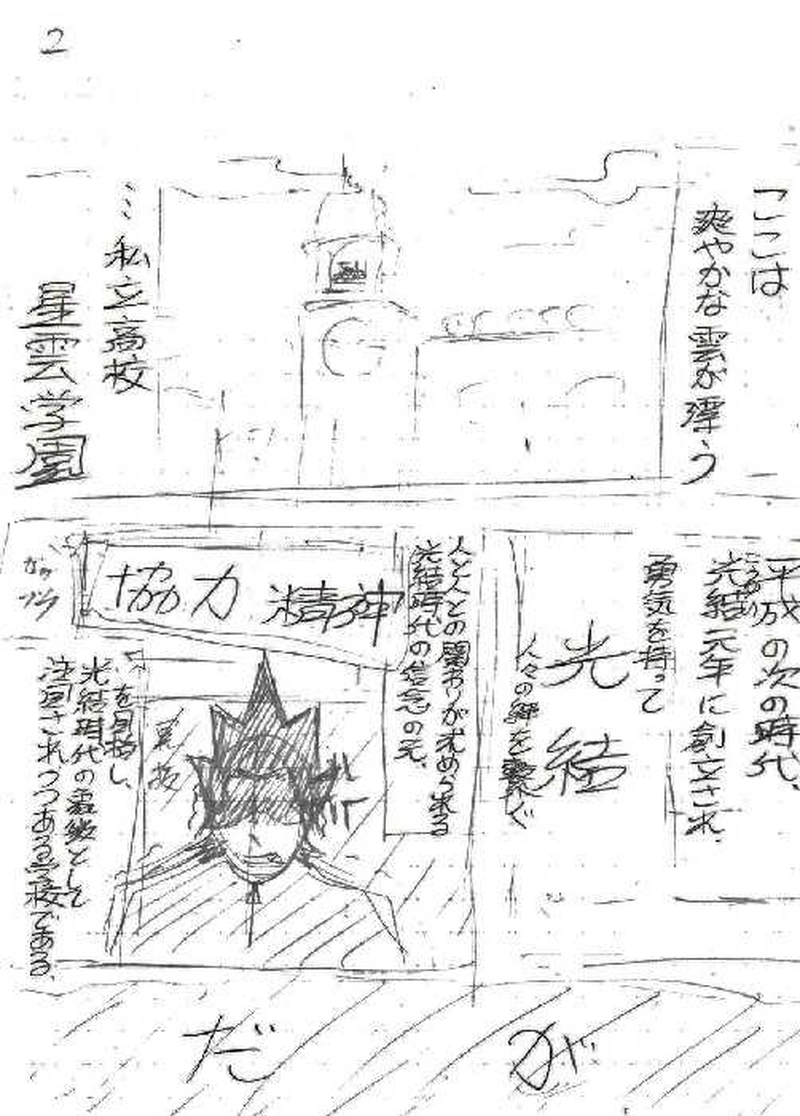 2
ここは
爽やかな雲が漂う
…私立高校
星雲学園
平成の次の時代、
光結元年に創立され、
勇気を持って
光結
人々の絆を繋ぐ
人と人との関わりが求められる
光結時代の信念の元、
協力 精神
を目指し、
光結時代の
注目されつつある学校である。
だが